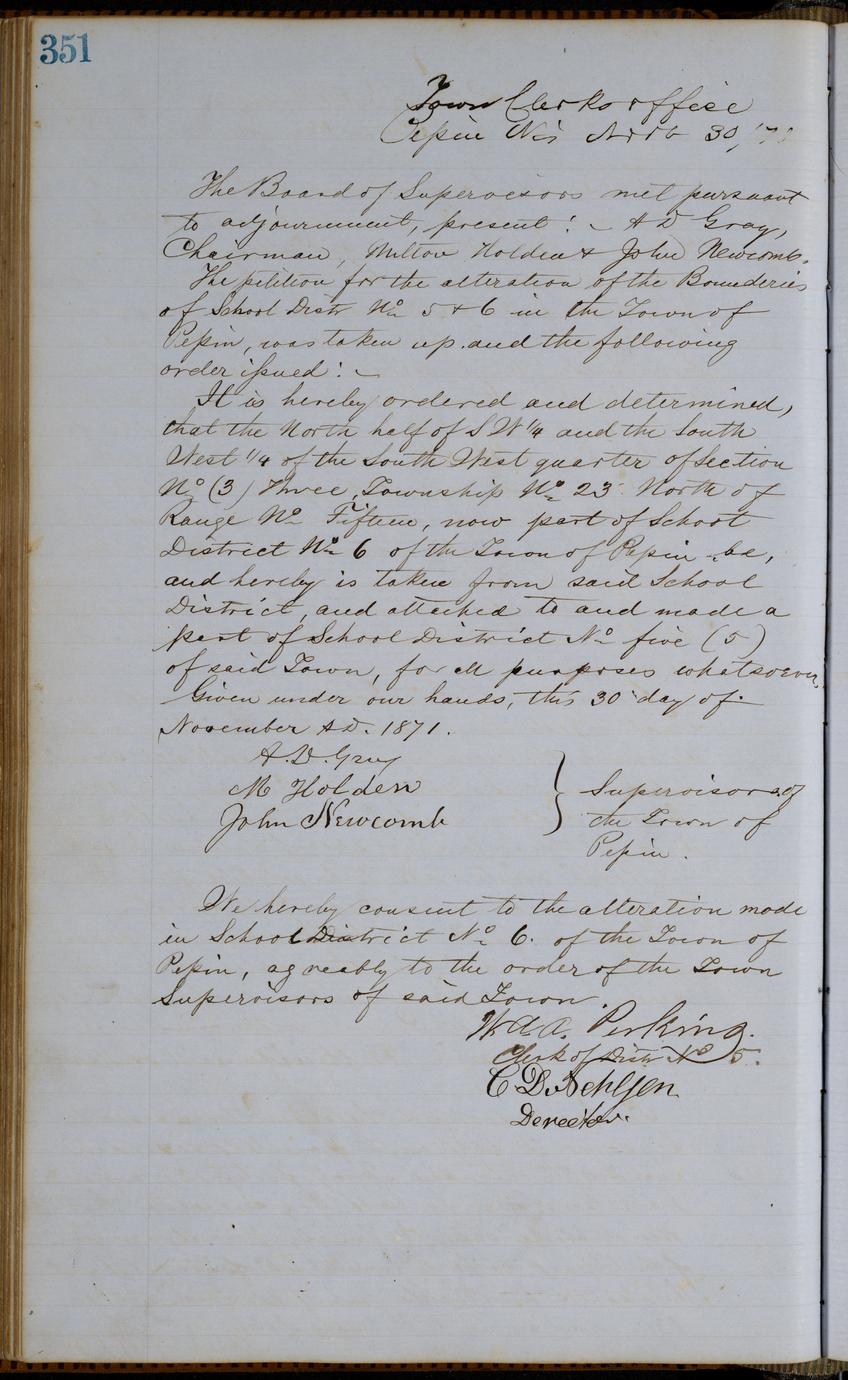 351
Town Clerks office
Pepin Wis Novb 30, '71
The Board of Supervisors met pursuant
to adjournment, present :- A D Gray,
Chairman, Milton Holden & John Newcomb.
The petition for the alteration of the Bounderies
of School Distr No 5 & 6 in the Town of
Pepin, was taken up and the following
order issued :-
It is hereby ordered and determined,
that the North half of S W 1/4 and the South
West 1/4 of the South West quarter of Section
No (3) Three, Township No 23 North of
Range No Fifteen, now part of School
District No 6 of the Town of Pepin be,
and hereby is taken from said School
District, and attached to and made a
part of School District No five (5)
of said Town, for all purposes whatsoever.
Given under our hands, this 30 day of
November A.D. 1871.
A. D. Gray
M Holden
John Newcomb
} Supervisors of
the Town of
Pepin.
We hereby consent to the alteration made
in School District No 6. of the Town of
Pepin, agreably to the order of the Town
Supervisors of said Town.
Perkins.
Clerk of Distr No 5.
C D
Derecter.